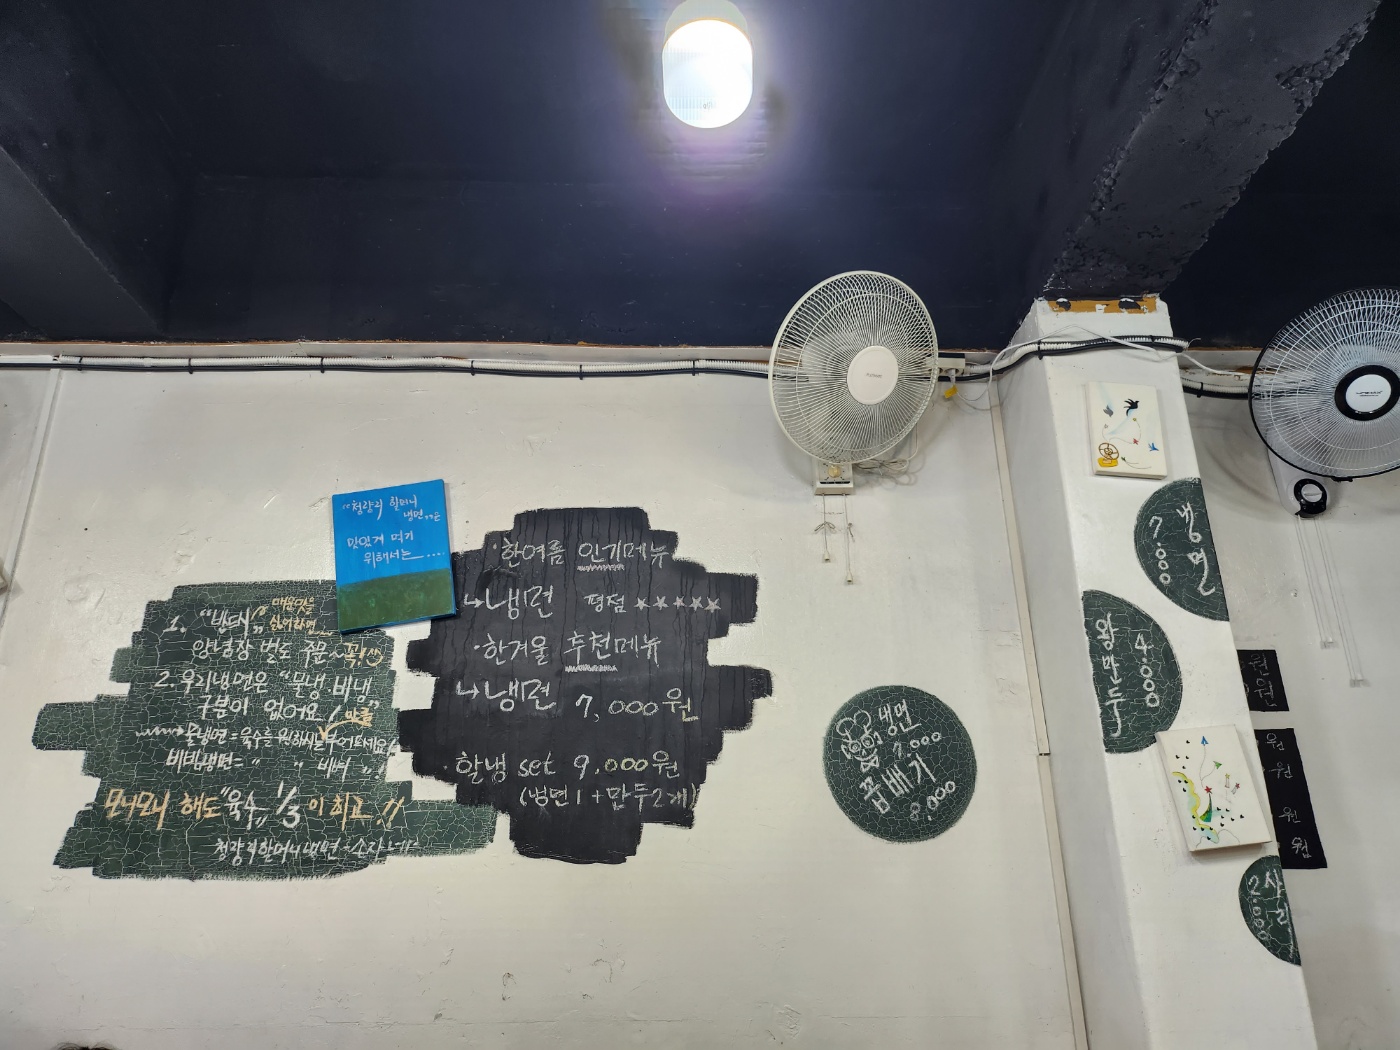 "청량리 할머니
냉면"은
맛있게 먹기
위해서는....
1. "반대"
매운맛을
싫어하면
양념장 별도 주문~꼭!
2. 우리냉면은 "물냉.비냉"
구분이 없어요!
물냉면=육수를 원하시는 부어드세요
비빔냉면= " " 비벼 "
모니모니 해도 "육수" 1/3이 최고!!
청량리할머니냉면-손자
·한여름 인기메뉴
↳냉면 평점 ★★★★★
·한겨울 추천메뉴
↳냉면 7,000원
·할냉 set 9,000원
(냉면1+만두2개)
냉면
7,000
곱빼기
8,000
냉면
7000
왕만두
4000
사리
2000
원
원
원
원
원